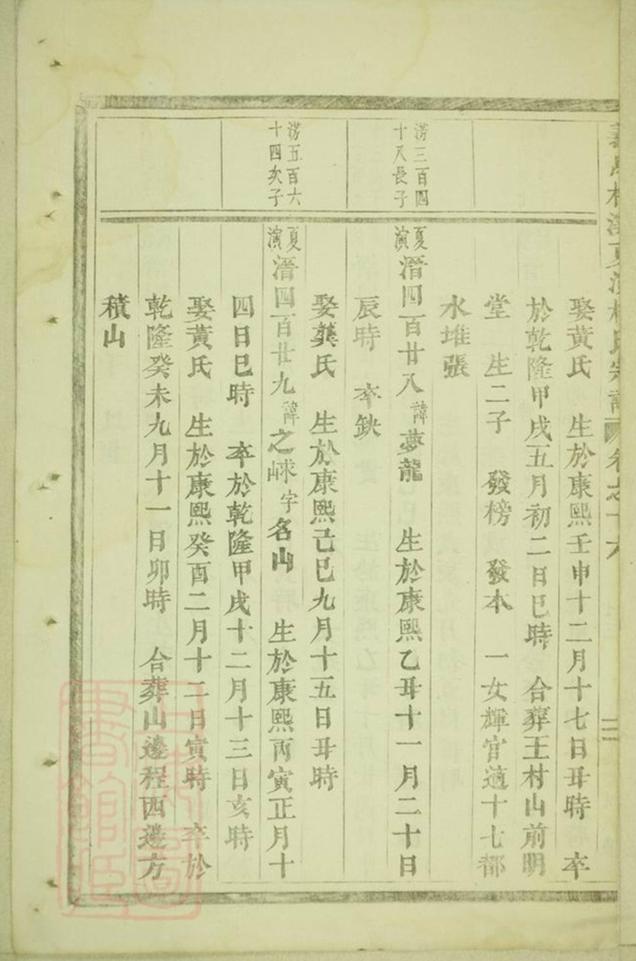 卷之十六 三
娶黃氏 生於康熙壬申十二月十七日丑時 卒
於乾隆甲戌五月初二日巳時 合葬王村山前明
堂 生二子 發榜 發本 一女輝官適十七都
水堆張
滂三百四
十八長子
夏演潛四百廿八諱夢龍 生於康熙乙丑十一月二十日
辰時 卒缺
娶龔氏 生於康熙己巳九月十五日丑時
滂五百六
十四次子
夏演潛四百廿九諱之字名山 生於康熙丙寅正月十
四日巳時 卒於乾隆甲戌十二月十三日亥時
娶黃氏 生於康熙癸酉二月十二日寅時 卒於
乾隆癸未九月十一日卯時 合葬山邊程西邊方
積山